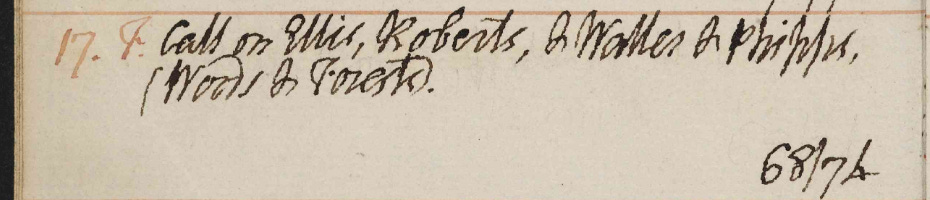 17. F. Call on Ellis, Roberts, & Waller & Phipps,
(Woods & Forests).
68/74